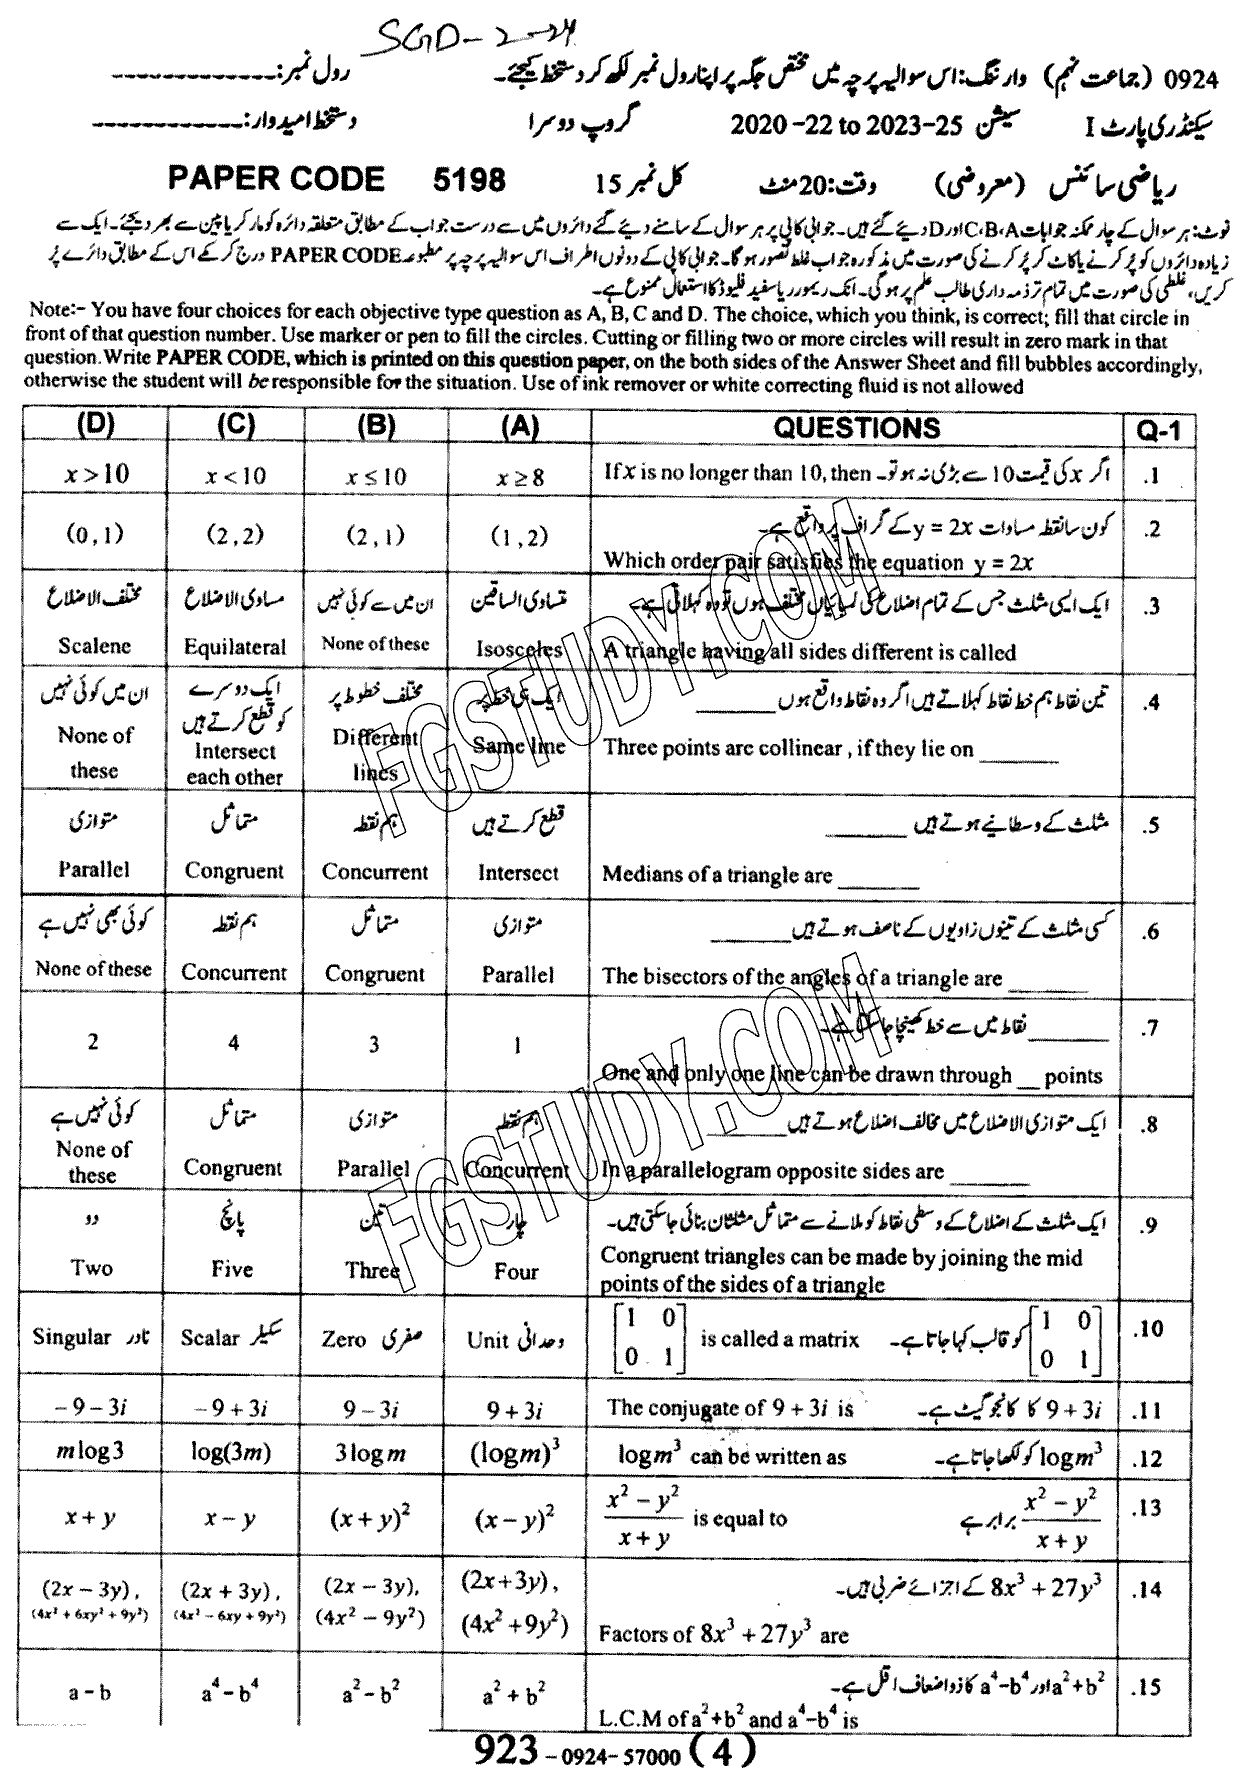 SGD-2-24
0924 (جماعت نہم) وارننگ: اس سوالیہ پرچہ میں مختص جگہ پر اپنا رول نمبر لکھ کر دستخط کیجئے۔ رول نمبر: -------------
سیکنڈری پارٹ I سیشن 2020-22 to 2023-25 گروپ دوسرا دستخط امیدوار: ------------
ریاضی سائنس (معروضی) وقت: 20 منٹ کل نمبر 15 PAPER CODE 5198
نوٹ: ہر سوال کے چار ممکنہ جوابات C،B،A اور D دیئے گئے ہیں۔ جوابی کاپی پر ہر سوال کے سامنے دیئے گئے دائروں میں سے درست جواب کے مطابق متعلقہ دائرہ کو مارکر یا پین سے بھر دیجئے۔ ایک سے
زیادہ دائروں کو پُر کرنے یا کاٹ کر پُر کرنے کی صورت میں مذکورہ جواب غلط تصور ہوگا۔ جوابی کاپی کے دونوں اطراف اس سوالیہ پرچہ پر مطبوعہ PAPER CODE درج کر کے اس کے مطابق دائرے پُر
کریں، غلطی کی صورت میں تمام تر ذمہ داری طالب علم پر ہوگی۔ انک ریمور یا سفید فلیوڈ کا استعمال ممنوع ہے۔
Note:- You have four choices for each objective type question as A, B, C and D. The choice, which you think, is correct; fill that circle in
front of that question number. Use marker or pen to fill the circles. Cutting or filling two or more circles will result in zero mark in that
question.Write PAPER CODE, which is printed on this question paper, on the both sides of the Answer Sheet and fill bubbles accordingly,
otherwise the student will be responsible for the situation. Use of ink remover or white correcting fluid is not allowed
(D) (C) (B) (A) QUESTIONS Q-1
x > 10 x < 10 x ≤ 10 x ≥ 8 If x is no longer than 10, then اگر x کی قیمت 10 سے بڑی نہ ہو تو۔ .1
کون سا نقطہ مساوات y = 2x کے گراف پر واقع ہے۔ .2
(0,1) (2,2) (2,1) (1,2)
Which order pair satisfies the equation y = 2x
مختلف الاضلاع مساوی الاضلاع ان میں سے کوئی نہیں متساوی الساقین ایک ایسی مثلث جس کے تمام اضلاع کی لمبائیاں مختلف ہوں تو وہ کہلاتی ہے۔ .3
Scalene Equilateral None of these Isosceles A triangle having all sides different is called
ان میں کوئی نہیں ایک دوسرے کو قطع کرتے ہیں مختلف خطوط پر ایک ہی خط پر تین نقاط ہم خط نقاط کہلاتے ہیں اگر وہ نقاط واقع ہوں ________ .4
None of these Intersect each other Different lines Same line Three points are collinear , if they lie on ________
متوازی متماثل ہم نقطہ قطع کرتے ہیں مثلث کے وسطانیے ہوتے ہیں ________ .5
Parallel Congruent Concurrent Intersect Medians of a triangle are ________
کوئی بھی نہیں ہے ہم نقطہ متماثل متوازی کسی مثلث کے تینوں زاویوں کے ناصف ہوتے ہیں ________ .6
None of these Concurrent Congruent Parallel The bisectors of the angles of a triangle are ________
________ نقاط میں سے خط کھینچا جا سکتا ہے۔ .7
2 4 3 1
One and only one line can be drawn through __ points
کوئی نہیں ہے متماثل متوازی ہم نقطہ ایک متوازی الاضلاع میں مخالف اضلاع ہوتے ہیں ________ .8
None of these Congruent Parallel Concurrent In a parallelogram opposite sides are ________
دو پانچ تین چار ایک مثلث کے اضلاع کے وسطی نقاط کو ملانے سے متماثل مثلثان بنائی جا سکتی ہیں۔ .9
Two Five Three Four Congruent triangles can be made by joining the mid
points of the sides of a triangle
Singular نادر Scalar سکیلر Zero صفری Unit وحدانی [1 0; 0 1] is called a matrix [1 0; 0 1] کو قالب کہا جاتا ہے۔ .10
-9-3i -9+3i 9-3i 9+3i The conjugate of 9+3i is 9+3i کا کانجوگیٹ ہے۔ .11
m log 3 log(3m) 3 log m (log m)³ log m³ can be written as log m³ کو لکھا جاتا ہے۔ .12
x + y x - y (x + y)² (x - y)² (x² - y²)/(x + y) is equal to (x² - y²)/(x + y) برابر ہے .13
8x³ + 27y³ کے اجزائے ضربی ہیں۔ .14
(2x - 3y), (4x² + 6xy² + 9y²) (2x + 3y), (4x² - 6xy + 9y²) (2x - 3y), (4x² - 9y²) (2x+3y), (4x² +9y²)
Factors of 8x³ + 27y³ are
a²+b² اور a⁴-b⁴ کا ذواضعاف اقل ہے۔ .15
a - b a⁴ - b⁴ a² - b² a² + b²
L.C.M of a²+b² and a⁴-b⁴ is
923 - 0924 - 57000 (4)
FGSTUDY.COM
FGSTUDY.COM